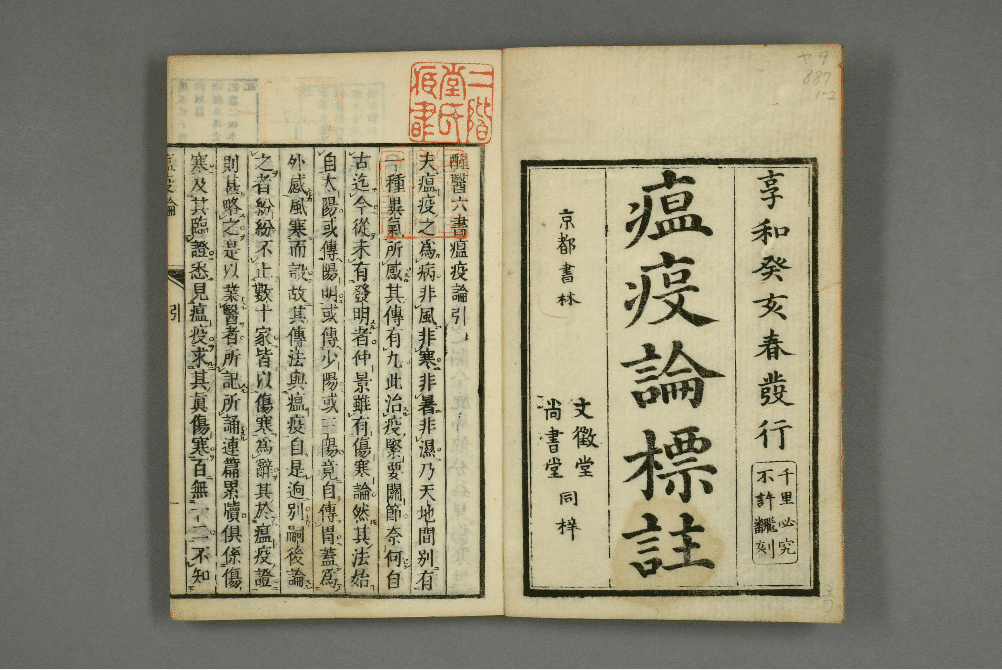 享和癸亥春發行
千里必究
不許飜刻
瘟疫論標註
京都書林
文徵堂
尚書堂
同梓
二階
堂氏
醒醫六書瘟疫論引
夫瘟疫之爲病非風非寒非暑非濕乃天地間別有
一種異氣所感其傳有九此治疫緊要關節奈何自
古迄今從未有發明者仲景雖有傷寒論然其法始
自太陽或傳陽明或傳少陽或三陽竟自傳胃蓋爲
外感風寒而設故其傳法與瘟疫自是迥別嗣後論
之者紛紛不止數十家皆以傷寒爲辭其於瘟疫證
則甚略之是以業醫者所記所誦連篇累牘俱係傷
寒及其臨證悉見瘟疫求其眞傷寒百無一二不知
瘟疫論
引
ヤ9
887
1-2